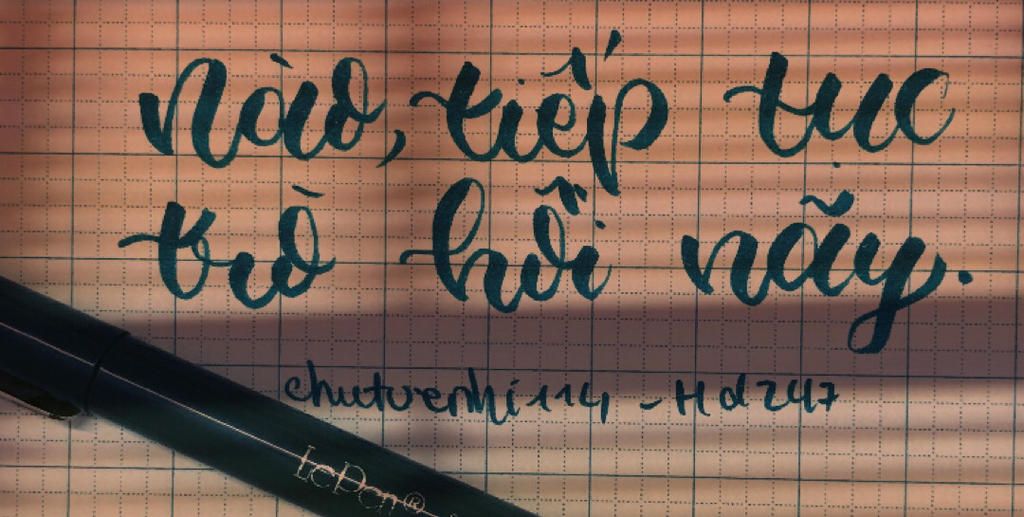 nào, tiếp tục
trò hồi nãy.
chutuenhi114 - Hd247
LePen®